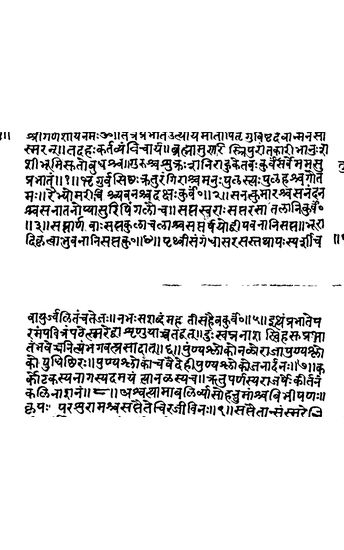 श्रीगणेशायनमः ॥ तत्रप्रभातेउत्थाय मनसा
स्मरन् ॥ तद्दहःकर्तव्यंविचार्य ॥ ब्रह्मामुरारिस्त्रिपुरांतकारीभानुःश
शीभूमिसुतोबुधश्च ॥ गुरुश्चशुक्रःशनिराहुकेतवःकुर्वंतुसर्वेममसु
प्रभातं ॥१॥ भृगुर्वसिष्ठःक्रतुरंगिराश्चमनुःपुलस्त्यःपुलहश्चगौत
मः ॥ रैभ्योमरीचिश्च्यवनश्चदक्षःकुर्वं०॥२॥ सनत्कुमारश्चसनंदन
श्चसनातनोप्यासुरिपिंगलौच ॥ सप्तस्वराःसप्तरसातलानिकुर्वं०
॥३॥ सप्तार्णवाःसप्तकुलाचलाश्चसप्तर्षयोद्वीपवनानिसप्त ॥ भूरा
दिकृत्वाभुवनानिसप्तकु०॥४॥ पृथ्वीसगंधासरसास्तथापःस्पर्शीच
वायुर्ज्वलितंचतेजः ॥ नभःसशब्दंमहतासहैवकुर्वं०॥५॥ इत्थंप्रभातेप
रमंपवित्रंपठेत्स्मरेद्वाशृणुयाच्चतद्वत् ॥ दुःस्वप्ननाशस्त्विहसुप्रभा
तंभवेच्चनित्यंभगवत्प्रसादात् ॥६॥ पुण्यश्लोकोनलोराजापुण्यश्लो
कोयुधिष्ठिरः ॥ पुण्यश्लोकाचवैदेहीपुण्यश्लोकोजनार्दनः ॥७॥ क
र्कोटकस्यनागस्यदमयंत्यानलस्यच ॥ ऋतुपर्णस्यराजर्षेःकीर्तनं
कलिनाशनं ॥८॥ अश्वत्थामाबलिर्व्यासोहनुमांश्चबिभीषणः ॥
कृपः परशुरामश्चसप्तैतेचिरजीविनः ॥९॥ सप्तैतान्संस्मरेन्नि